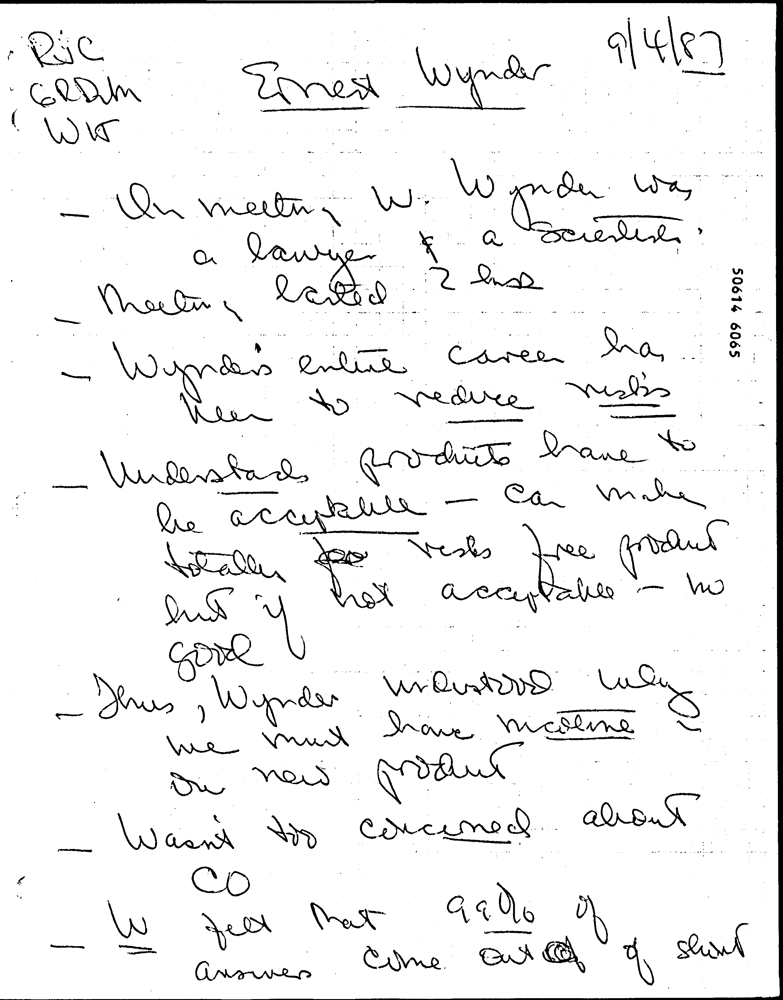 RJC
GRDiM
WK
Ernest Wynder 9/4/87
- In meeting W. Wynder was
a lawyer & a Scientist.
- Meeting lasted 2 hrs
50614 6065
- Wynder's entire career has
been to reduce risks
- Understands products have to
be acceptable - can make
totally risks free product
but if not acceptable - no
good
- Thus, Wynder understood why
we must have nicotine in
our new product
- Wasn't too concerned about
CO
- W felt that 99% of
answers come out of short